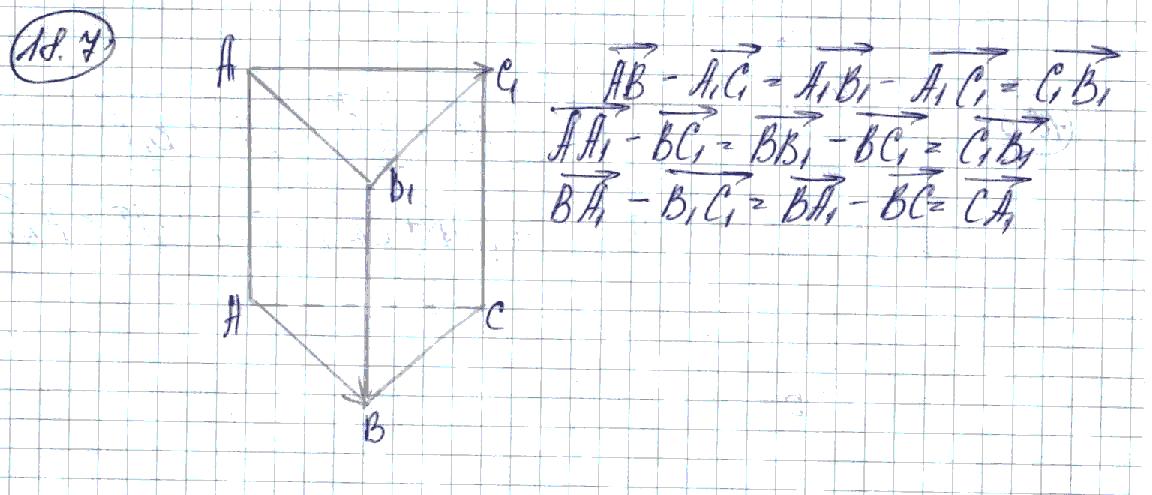 18.7
A C₁
B₁
A C
B
AB - A₁C₁ = A₁B₁ - A₁C₁ = C₁B₁
AA₁ - BC₁ = BB₁ - BC₁ = C₁B₁
BA₁ - B₁C₁ = BA₁ - BC = CA₁